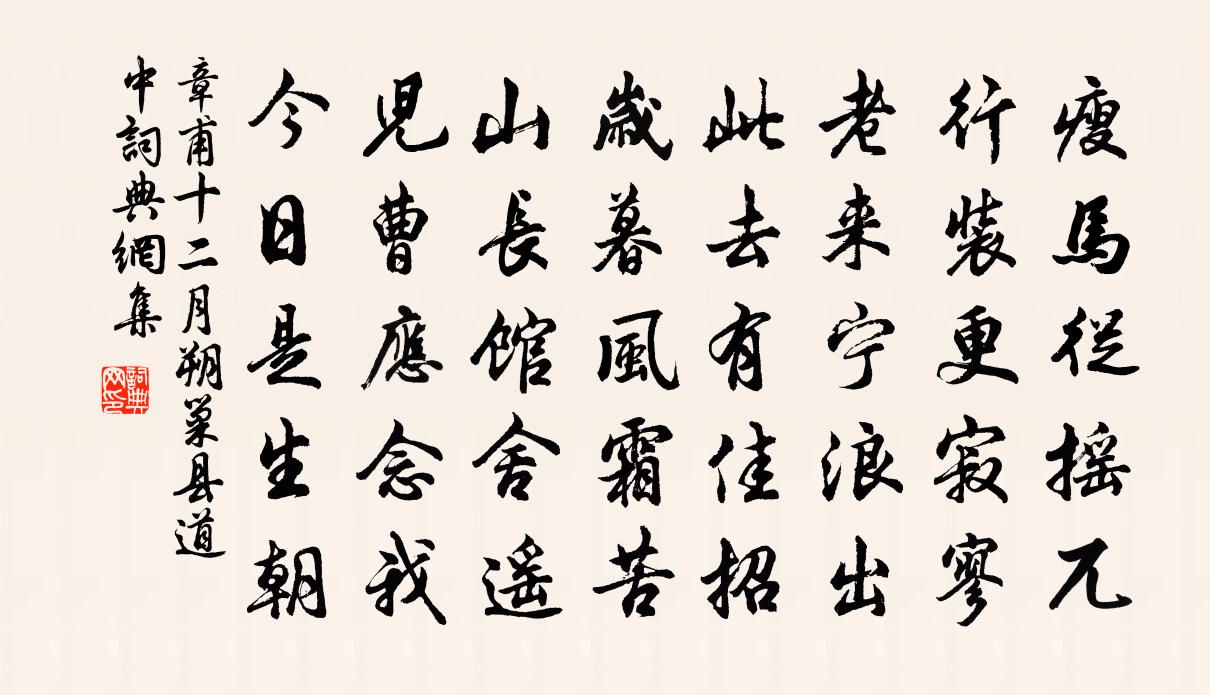 瘦馬從摇兀
行裝更寂寥
老来宁浪出
此去有佳招
歲暮風霜苦
山長馆舍遥
児曹應念我
今日是生朝
章甫十二月朔巢县道
中詞典網集
詞典网印